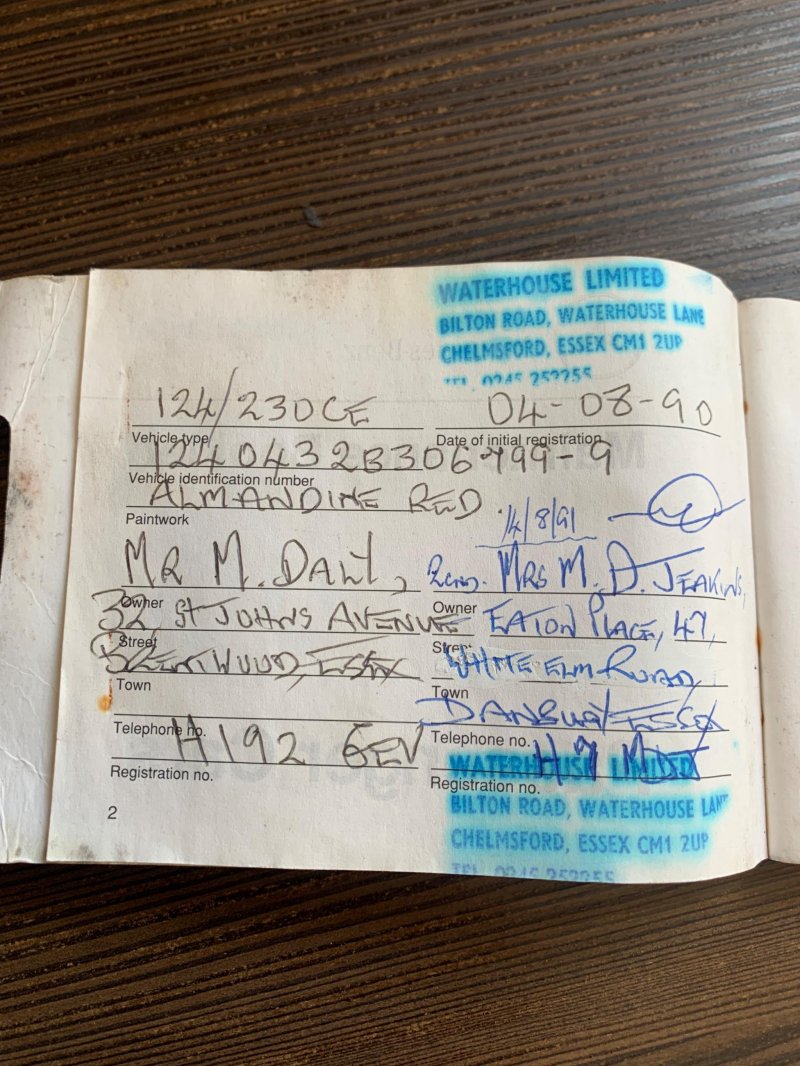 WATERHOUSE LIMITED
BILTON ROAD, WATERHOUSE LANE
CHELMSFORD, ESSEX CM1 2UP
TEL. 0245 252255
124/230CE
04-08-90
Vehicle type
Date of initial registration
1240432B306799-9
Vehicle identification number
ALMANDINE RED
Paintwork
14/8/91
MR M. DALY,
MRS M. D. JEAKINS,
Owner
Owner
32, ST JOHNS AVENUE
EATON PLACE, 47,
Street
Street
BRENTWOOD, ESSEX
WHITE ELM ROAD,
Town
Town
DANBURY ESSEX
Telephone no.
Telephone no.
H192 GEV
Registration no.
Registration no.
WATERHOUSE LIMITED
BILTON ROAD, WATERHOUSE LANE
CHELMSFORD, ESSEX CM1 2UP
TEL. 0245 252255
2